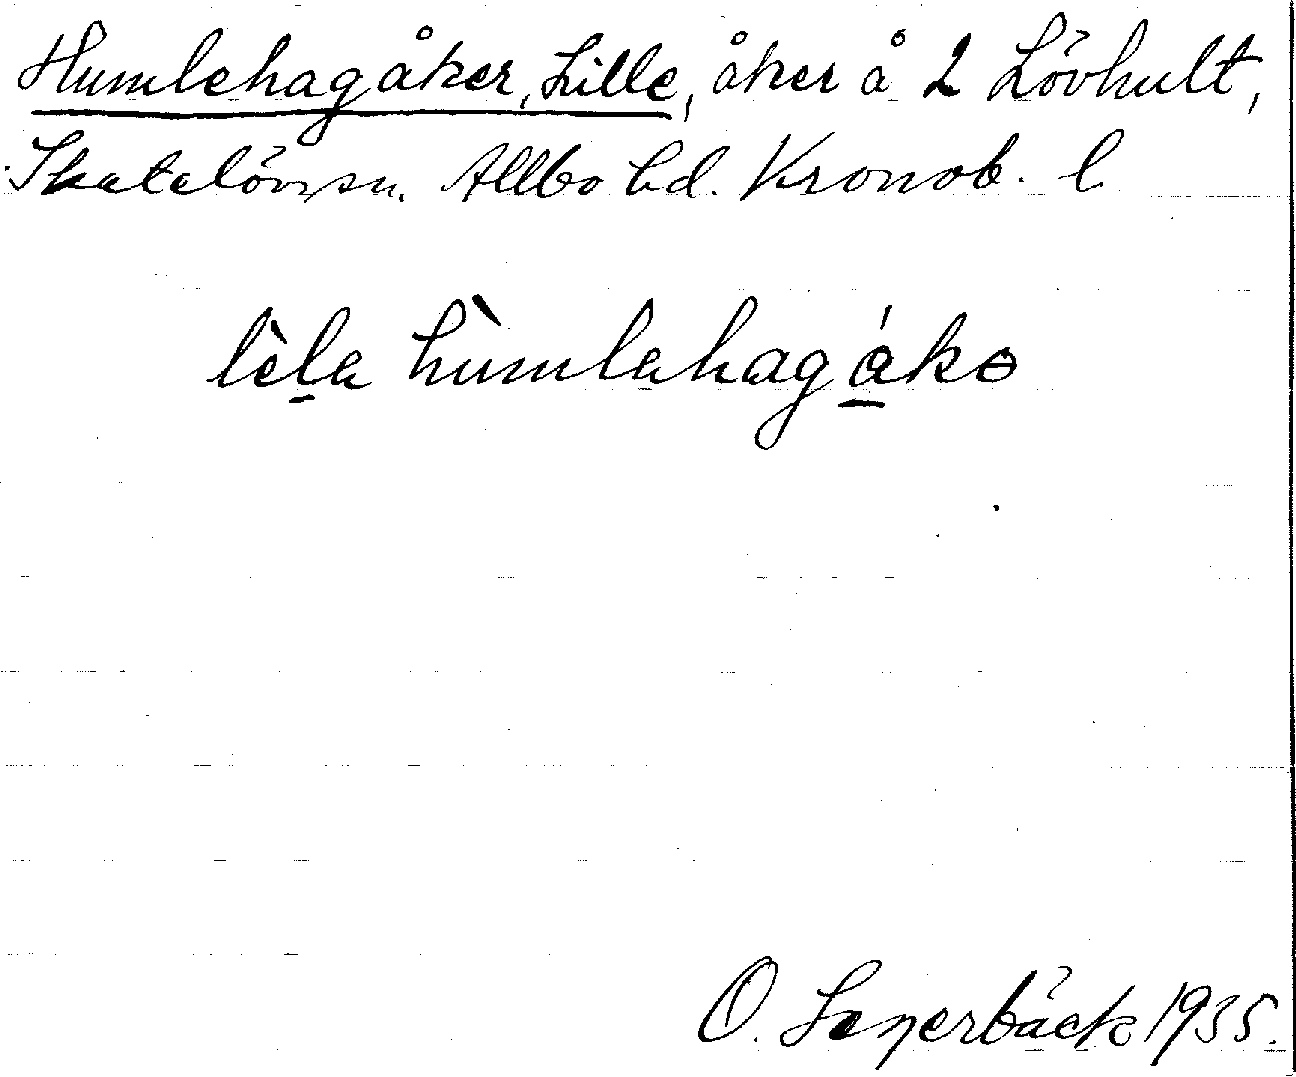 Humlehagåker, Lille, åker å 2 Lövhult,
Skatelövs sn. Allbo hd. Kronob. l
lèla hùmlahagáko
O. 1935.